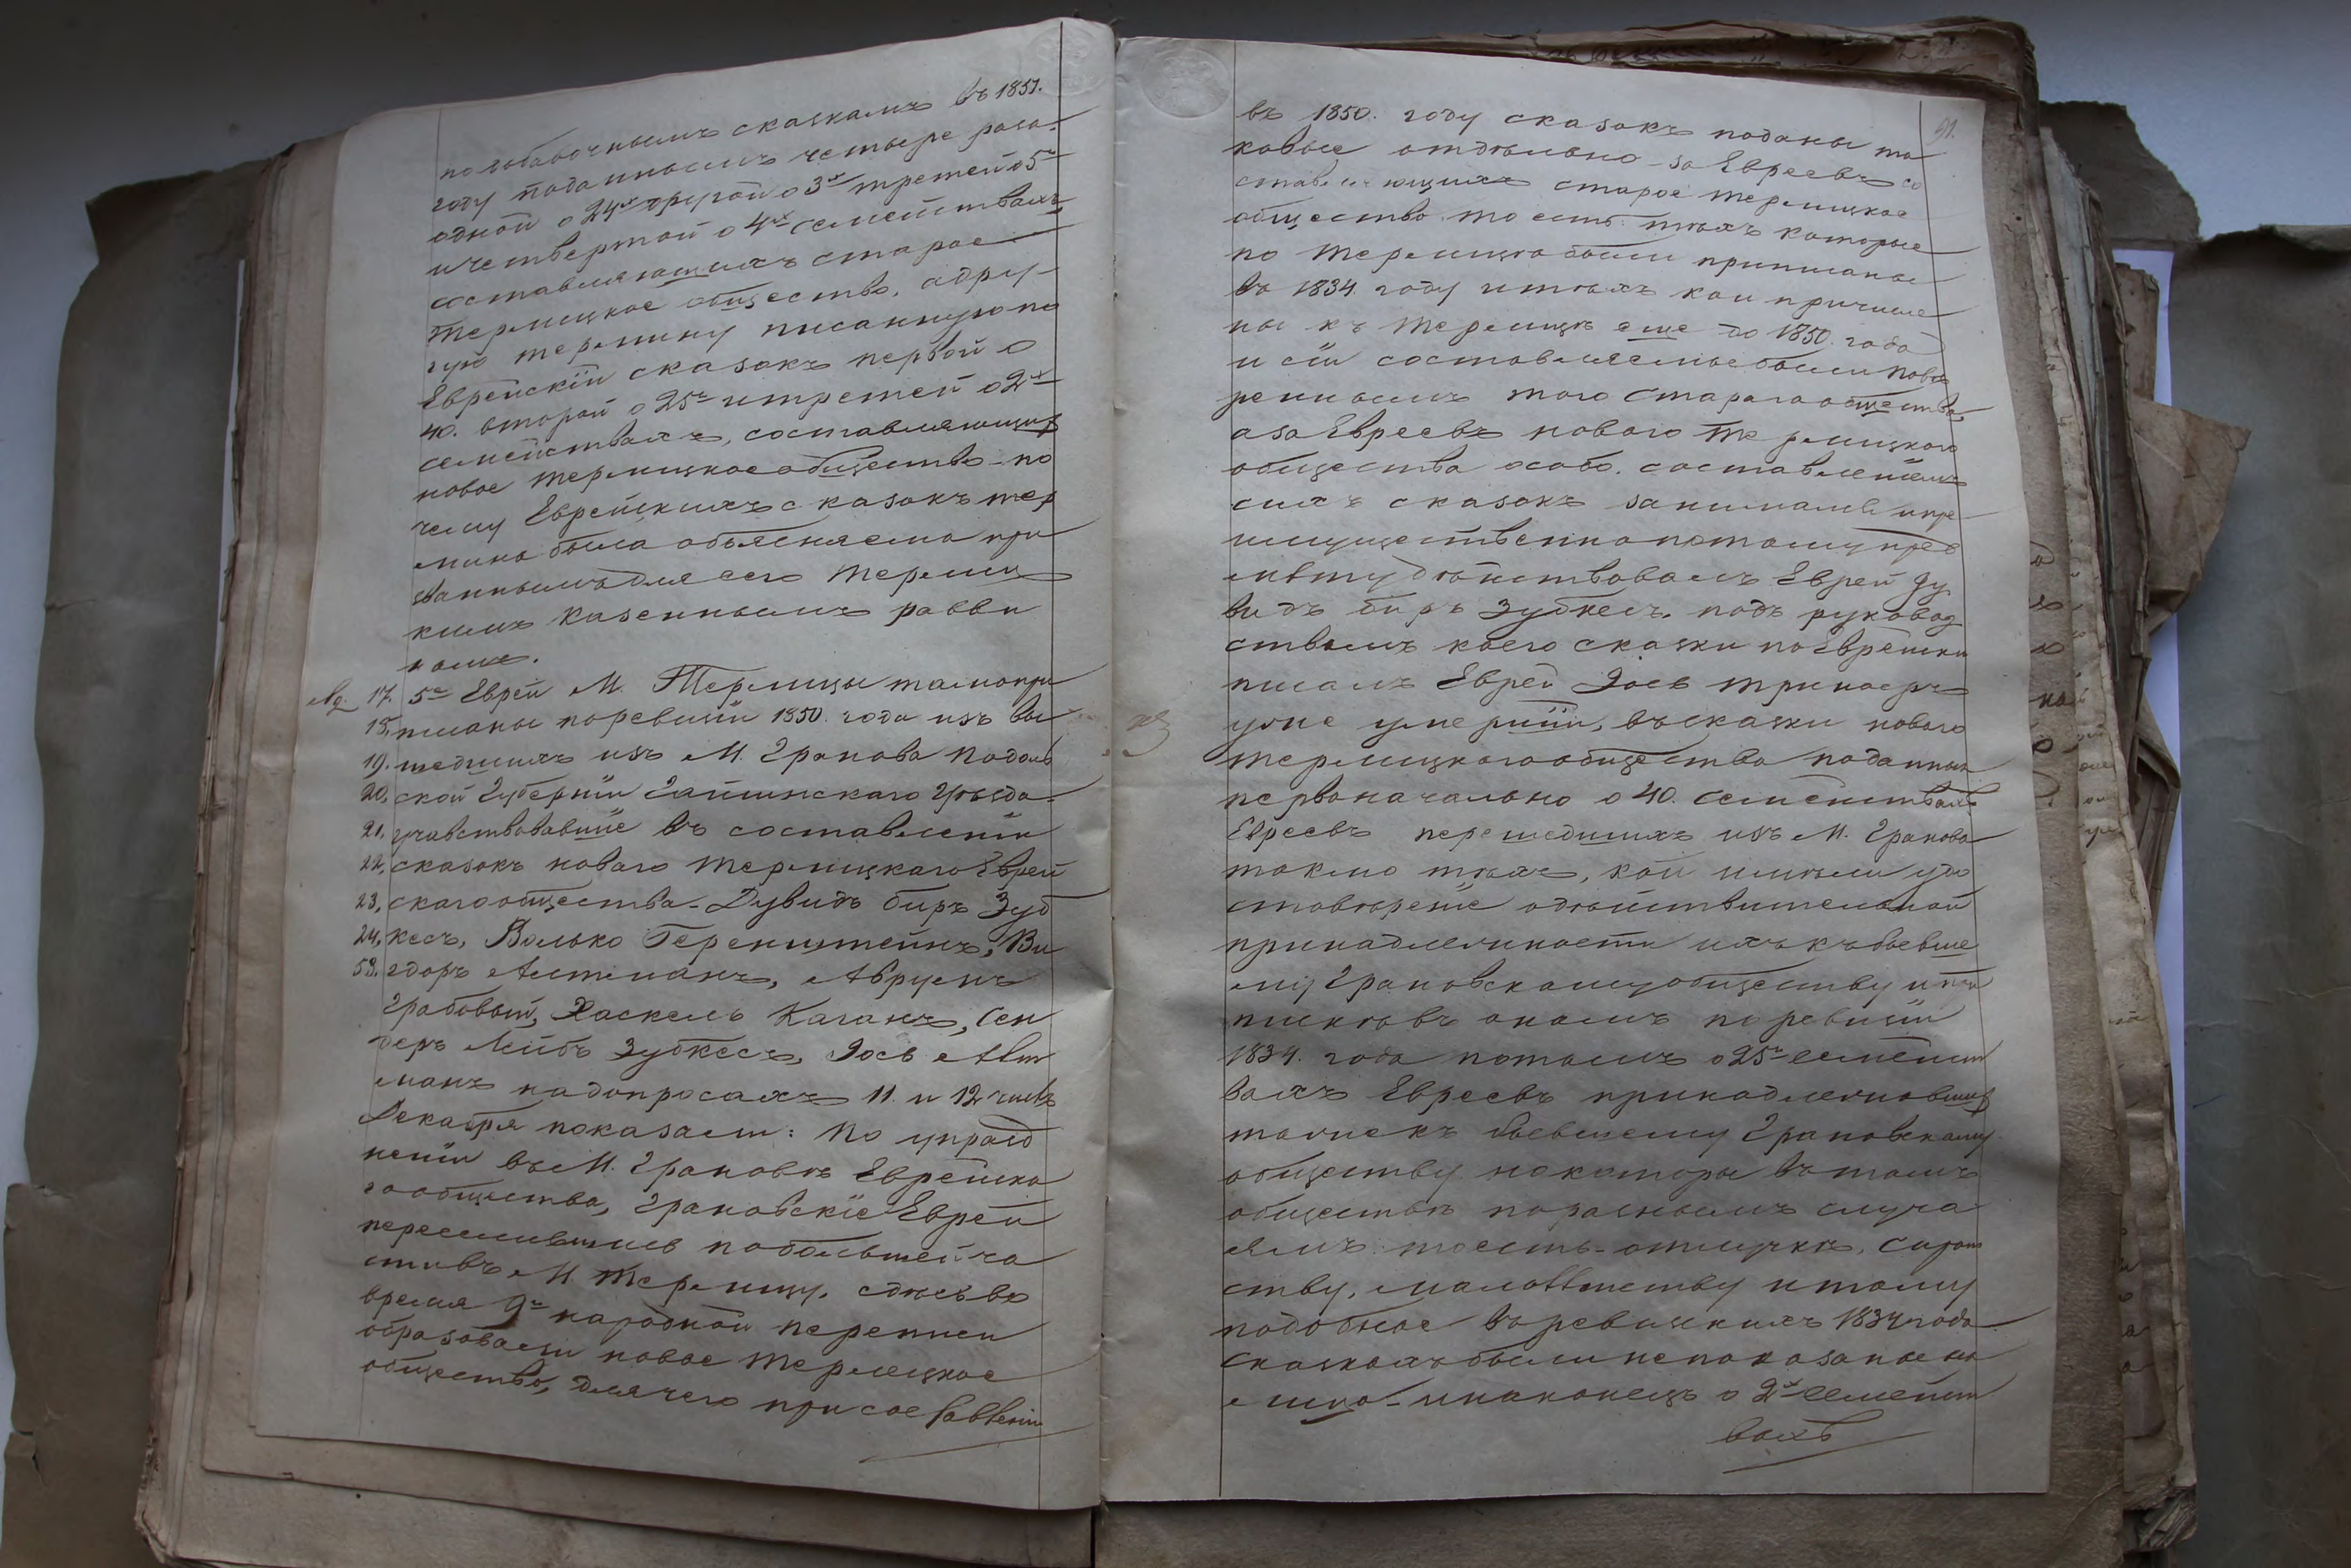 по добавочнымъ сказкамъ въ 1851.
году поданнымъ четыре раза.
одной о 24хъ другой о 3хъ третей о 5ти
и четвертой о 4хъ семействахъ
составляющихъ старое
Терлицкое общество, а дру-
гую терлину писанную по
Еврейскіи сказокъ первой о
40. второй о 25ти и третей о 2хъ
семействахъ, составляющихъ
новое терлицкое общество по
чему Еврейскихъ сказокъ тер
мина была объясняема при
званнымъ для сего Терлиц
кимъ казеннымъ равви
номъ.
17. 5ть Евреи М. Терлицы тамо при
18. писаны по ревизіи 1850. года изъ вы
19. шедшихъ изъ М. Гранова Подоль
20. ской Губерніи Гайсинскаго Уѣзда-
21. учавствовавшіе въ составленіи
22. сказокъ новаго терлицкаго Еврей
23. скаго общества - Дувидъ биръ Зуб
24. кесъ, Волько Геренштейнъ, Ви
58. гдоръ Альтманъ, Аврумъ
Грабовый, Хаскель Каганъ, Сен
деръ Лейбъ Зубкесъ, Іось Альт
манъ на допросахъ 11 и 12 числъ
Декабря показали: по упразд
неніи въ М. Грановѣ Еврейска
го общества, Грановскіе Евреи
переселившись по большей ча
сти въ М. Терлицу, здѣсь во
время 9й народной переписи
образовали новое терлецкое
общество, для чего при
въ 1850. году сказокъ поданы та
ковые отдѣльно - за Евреевъ со
ставляющихъ старое терлицкое
общество то есть тѣхъ которые
по терлицѣ были приписаны
въ 1834 году и тѣхъ кои причисле
ны къ терлицѣ еще до 1850. года
и сіи составляемые были повѣ
реннымъ того стараго общества,
а за Евреевъ новаго терлицкого
общества особо. составленіемъ
сихъ сказокъ занимались и пре
имущественно потому пред
метудѣйствовалъ Еврей Ду
видъ биръ Зубкесъ. подъ руковод
ствомъ коего сказки по Еврейски
писалъ Еврей Іось
уже умершій, въ сказки новаго
терлицкаго общества поданныя
первоначально о 40. семействахъ
Евреевъ перешедшихъ изъ М. Гранова
токмо тѣхъ, кои имѣли удо
стовѣреніе о дѣйствительной
принадлежности ихъ къ бывше
му Грановскому обществу и при
пискѣ въ ономъ по ревизіи
1834. года потомъ о 25ти семейст
вахъ Евреевъ принадлежавшихъ
также къ бывшему Грановскому
обществу но которы въ томъ
обществѣ по разнымъ случа
ямъ то есть - отлучкѣ, сирот
ству, малолѣтству и тому
подобное въ ревизскихъ 1834 года
сказкахъ были не показаные на
и наконецъ о 2хъ семейст
вахъ